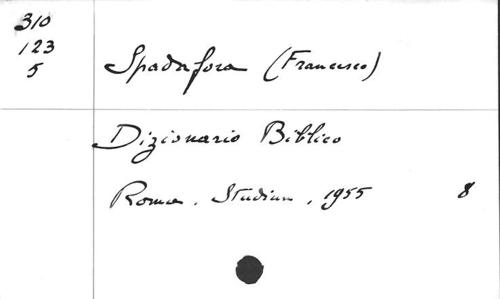 310
123
5
Spadafora (Francesco)
Dizionario Biblico
Roma. Studium, 1955 8